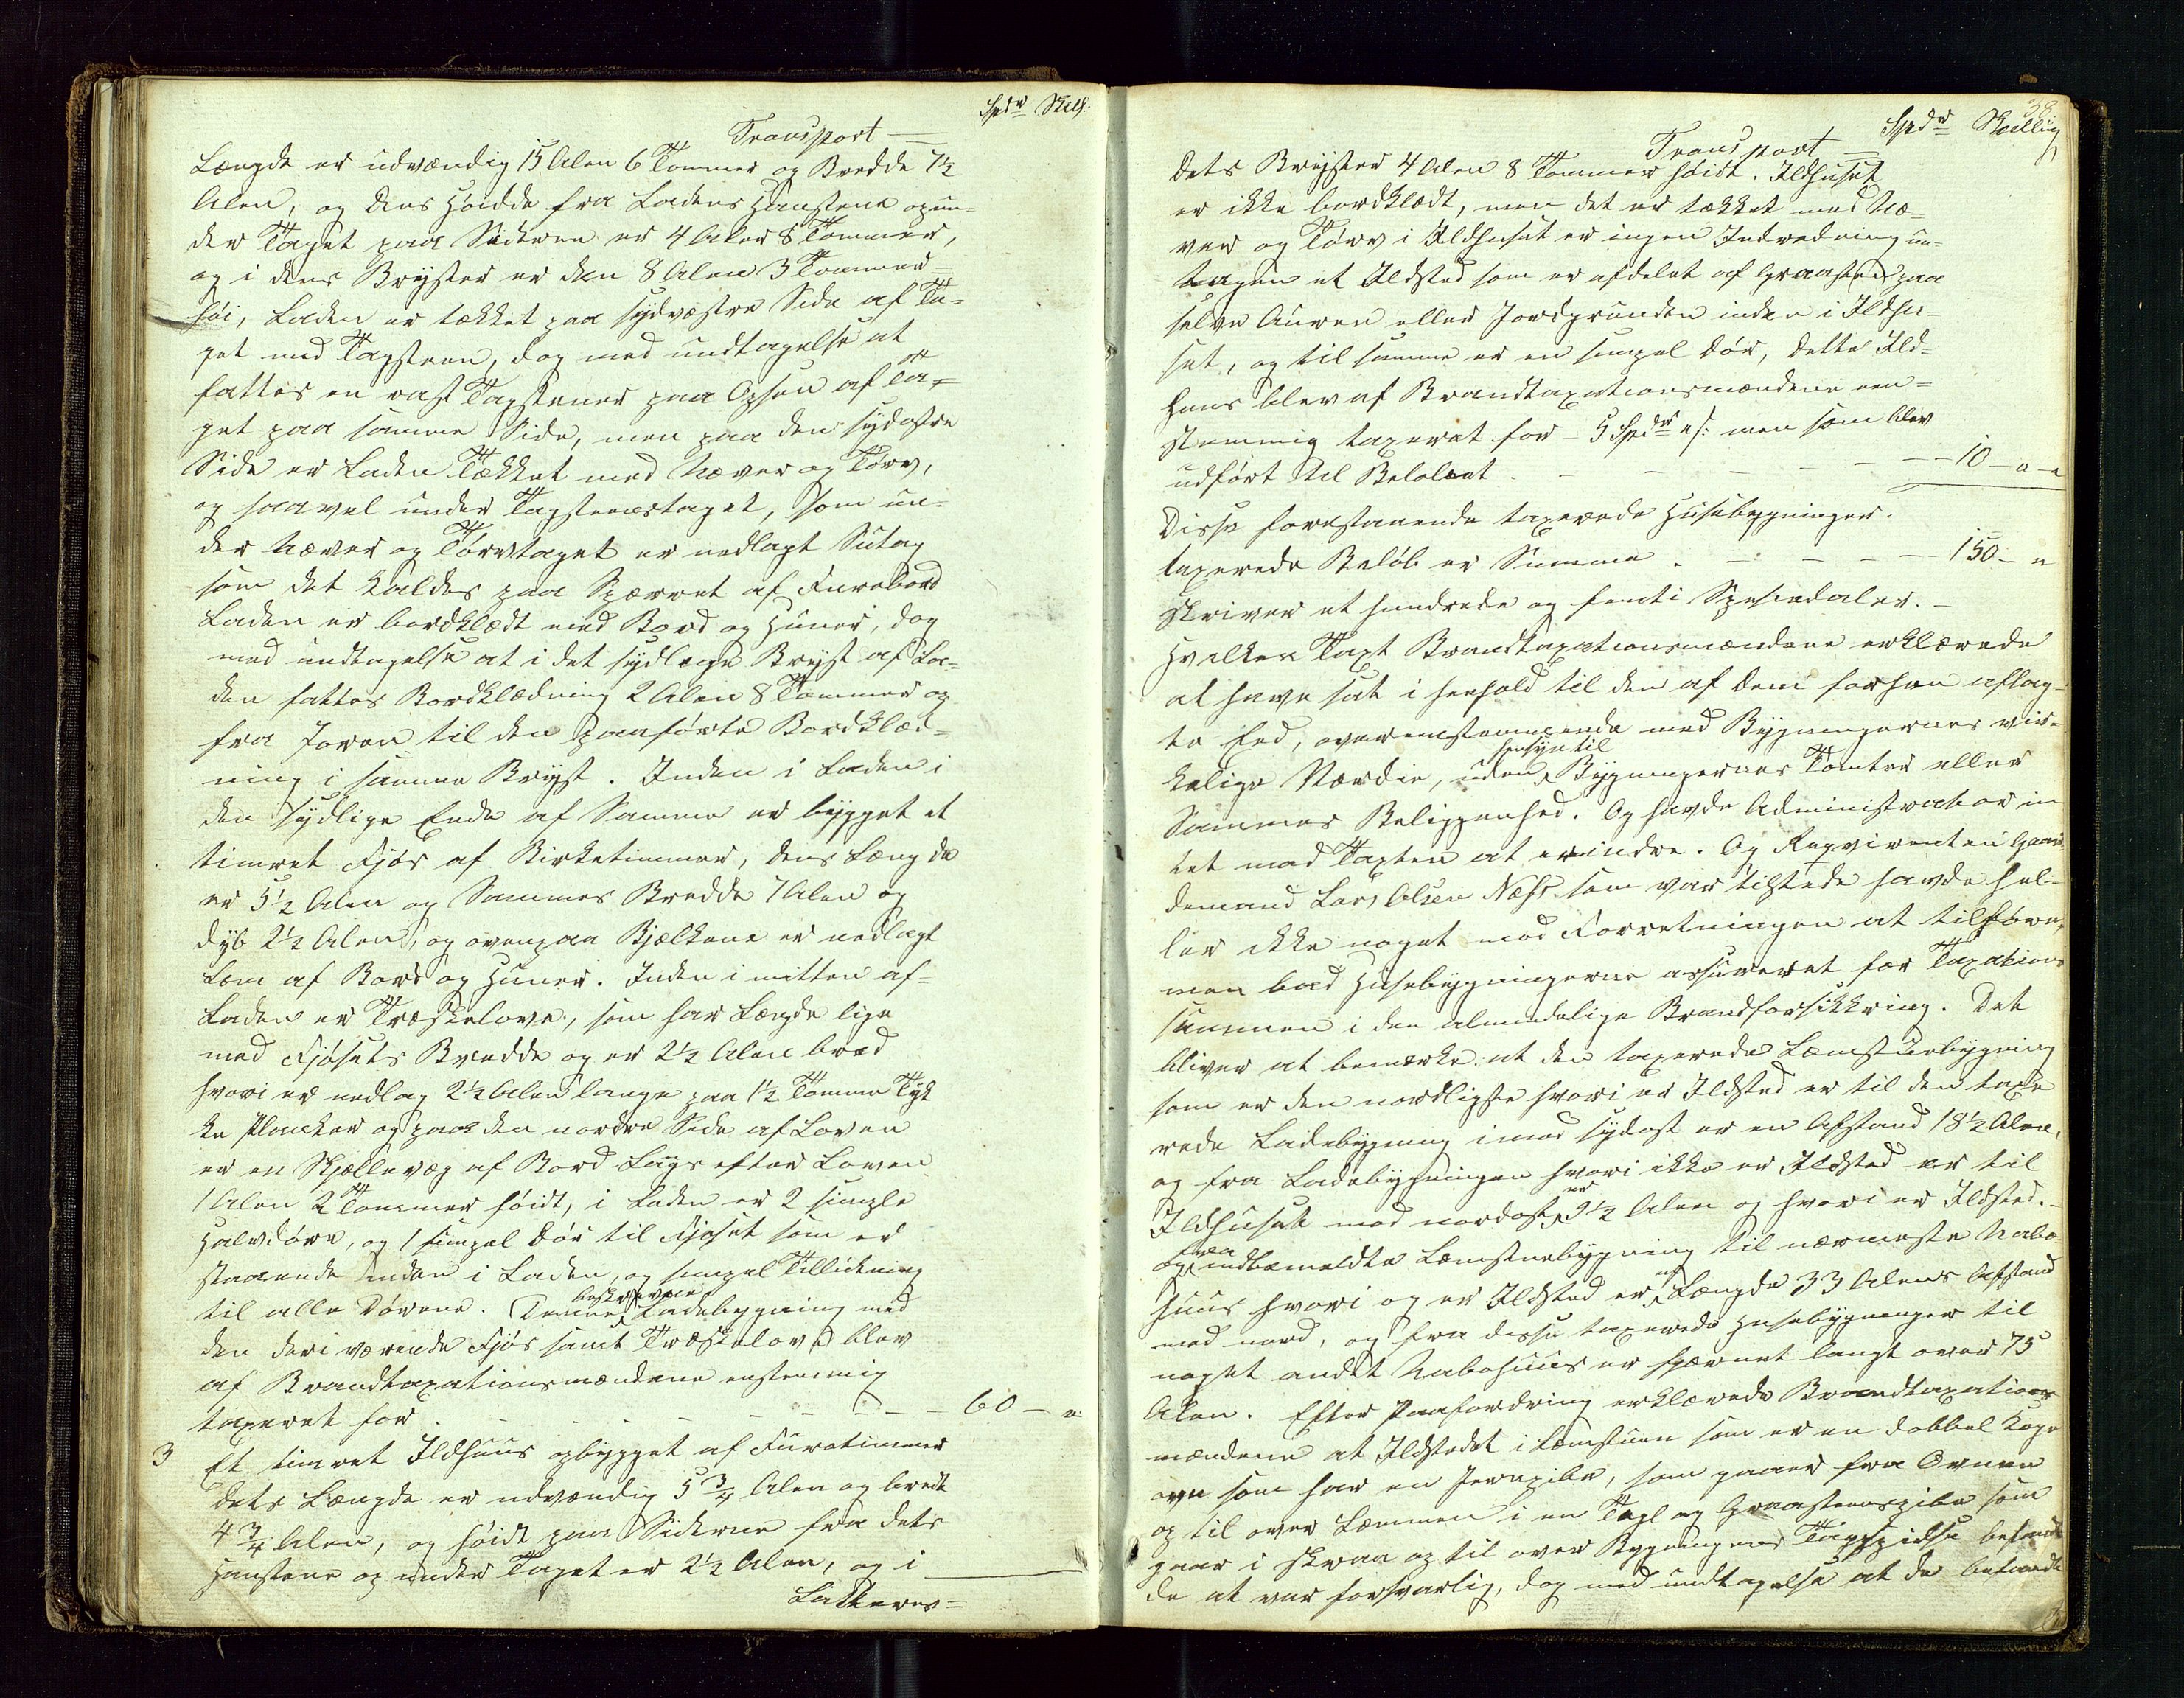 Spdr Skill:
Transport —
Længde er udvændig 15 Alen 6 Tommer og Bredde 7½
Alen, og dens Høidde fra Ladens Haustene op un-
der Taget paa Siderne er 4 Alen 8 Tommer,
og i dens Bryster er den 8 Alen 3 Tommer
høi, Laden er tækket paa sydvestre Side af Ta-
get med Tagsteen, dog med undtagelse at
fattes en rast Tagstener paa Opsen af Ta-
get paa samme Side, men paa den sydostre
Side er Laden Tækket med Næver og Tørv,
og saavel under Tagsteenstaget, som un-
der Næver og Tørvtaget er nedlagt Sutag
som det kaldes paa Sperret af Furebord
Laden er bordklædt med Bord og Huner, dog
med undtagelse at i det sydlige Bryst af La-
den fattes Bordklædning 2 Alen 8 Tommer op
fra Joren til den paaførte Bordklæd-
ning i samme Bryst. Inden i Laden i
den sydlige Ende af Samme er bygget et
timret Fjøs af Birketimmer, dens Længde
er 5½ Alen og Sammes Bredde 7 Alen og
dyb 2½ Alen, og ovenpaa Bjælkene er nedlagt
Lem af Bord og Huner. Inden i mitten af
Laden er Træskelove, som har Længde lige
med Fjøsets Bredde og er 2½ Alen bred
hvori er nedlag 2½ Alen lange paa 1½ Tomme Tyk
ke Plancker og paa den nordre Side af Loven
er en Skjellevæg af Bord Lags efter Loven
1 Alen 2 Tommer høidt, i Laden er 2 simple
Halvdøre, og 1 simpel Dør til Fjøset som er
staaende inden i Laden, og simpel Tillukning
til alle Dørene. Denne beskrevne Ladebygning med
den deri værende Fjøs samt Træskelove blev
af Brandtaxationsmændene enstemmig
taxeret for . - - - - - - - 60 — "
3 Et timret Ildhuus opbygget af Furetimmer
dets Længde er udvændig 5¾ Alen og bredt
4¾ Alen, og høidt paa Siderne fra dets
Haustene op under Taget er 2½ Alen, og i
Latteres =
38
Spdr Skilling
Transport —
dets Bryster 4 Alen 8 Tommer høidt. Ildhuset
er ikke bordklædt, men det er tækket med Næ-
ver og Tørv i Ildhuset er ingen Indredning un-
tagen et Ildsted som er afdelet af Graasteen paa
selve Auren eller Jordgrunden inden i Ildhu-
set, og til samme er en simpel Dør, dette Ild-
huus blev af Brandtaxationsmændene een-
stemmig taxeret for - 5 Spdr s/: men som blev
udført til Beløbet . - - - - - - 10 — " — "
Disse forestaaende taxerede Husebygninger.
taxerede Beløb er Summa . - - - - 150 — "
skriver et hundrede og femti Speciedaler. —
Hvilken Taxt Brandtaxationsmændene erklærede
at have sat i henhold til den af dem forhen aflag-
te Eed, overensstemmende med Bygningernes vir-
kelige Værdie, uden hensyn til Bygningernes Tomter eller
Sammes Beliggenhed. Og havde Administrator in
tet mod Taxten at erindre. Og Reqvirenten Gaar-
demand Lars Olsen Næss som var tilstede havde hel-
ler ikke noget mod Forretningen at tilføre,
men bad Husebygningerne assureret for Taxations
summen i den almindelige Brandforsikkring. Det
bliver at bemerke: at den taxerede Læmstuebygning
som er den nordligste hvori er Ildsted er til den taxe
rede Ladebygning imod sydost er en Afstand 18½ Alen,
og fra Ladebygningen hvori ikke er Ildsted er til
Ildhuset mod nordost er 9½ Alen og hvori er Ildsted. —
Og fra indbemeldte Læmstuebygning til nærmeste Nabo-
huus hvori og er Ildsted er en Længde 33 Alens Afstand
mod nord, og fra disse taxerede Husebygninger til
noget andet Nabohuus er fjærnet langt over 75
Alen. Efter Paafordring erklærede Brandtaxations
mændene at Ildstedet i Læmstuen som er en dobbel Koge
ovn som har en Jernpibe, som gaaer fra Ovnen
op til over Læmmen i en Tegl og Graasteenspibe som
gaar i skraa op til over Bygningens Tagspidse befand
de at var forsvarlig, dog med undtagelse at de befandt